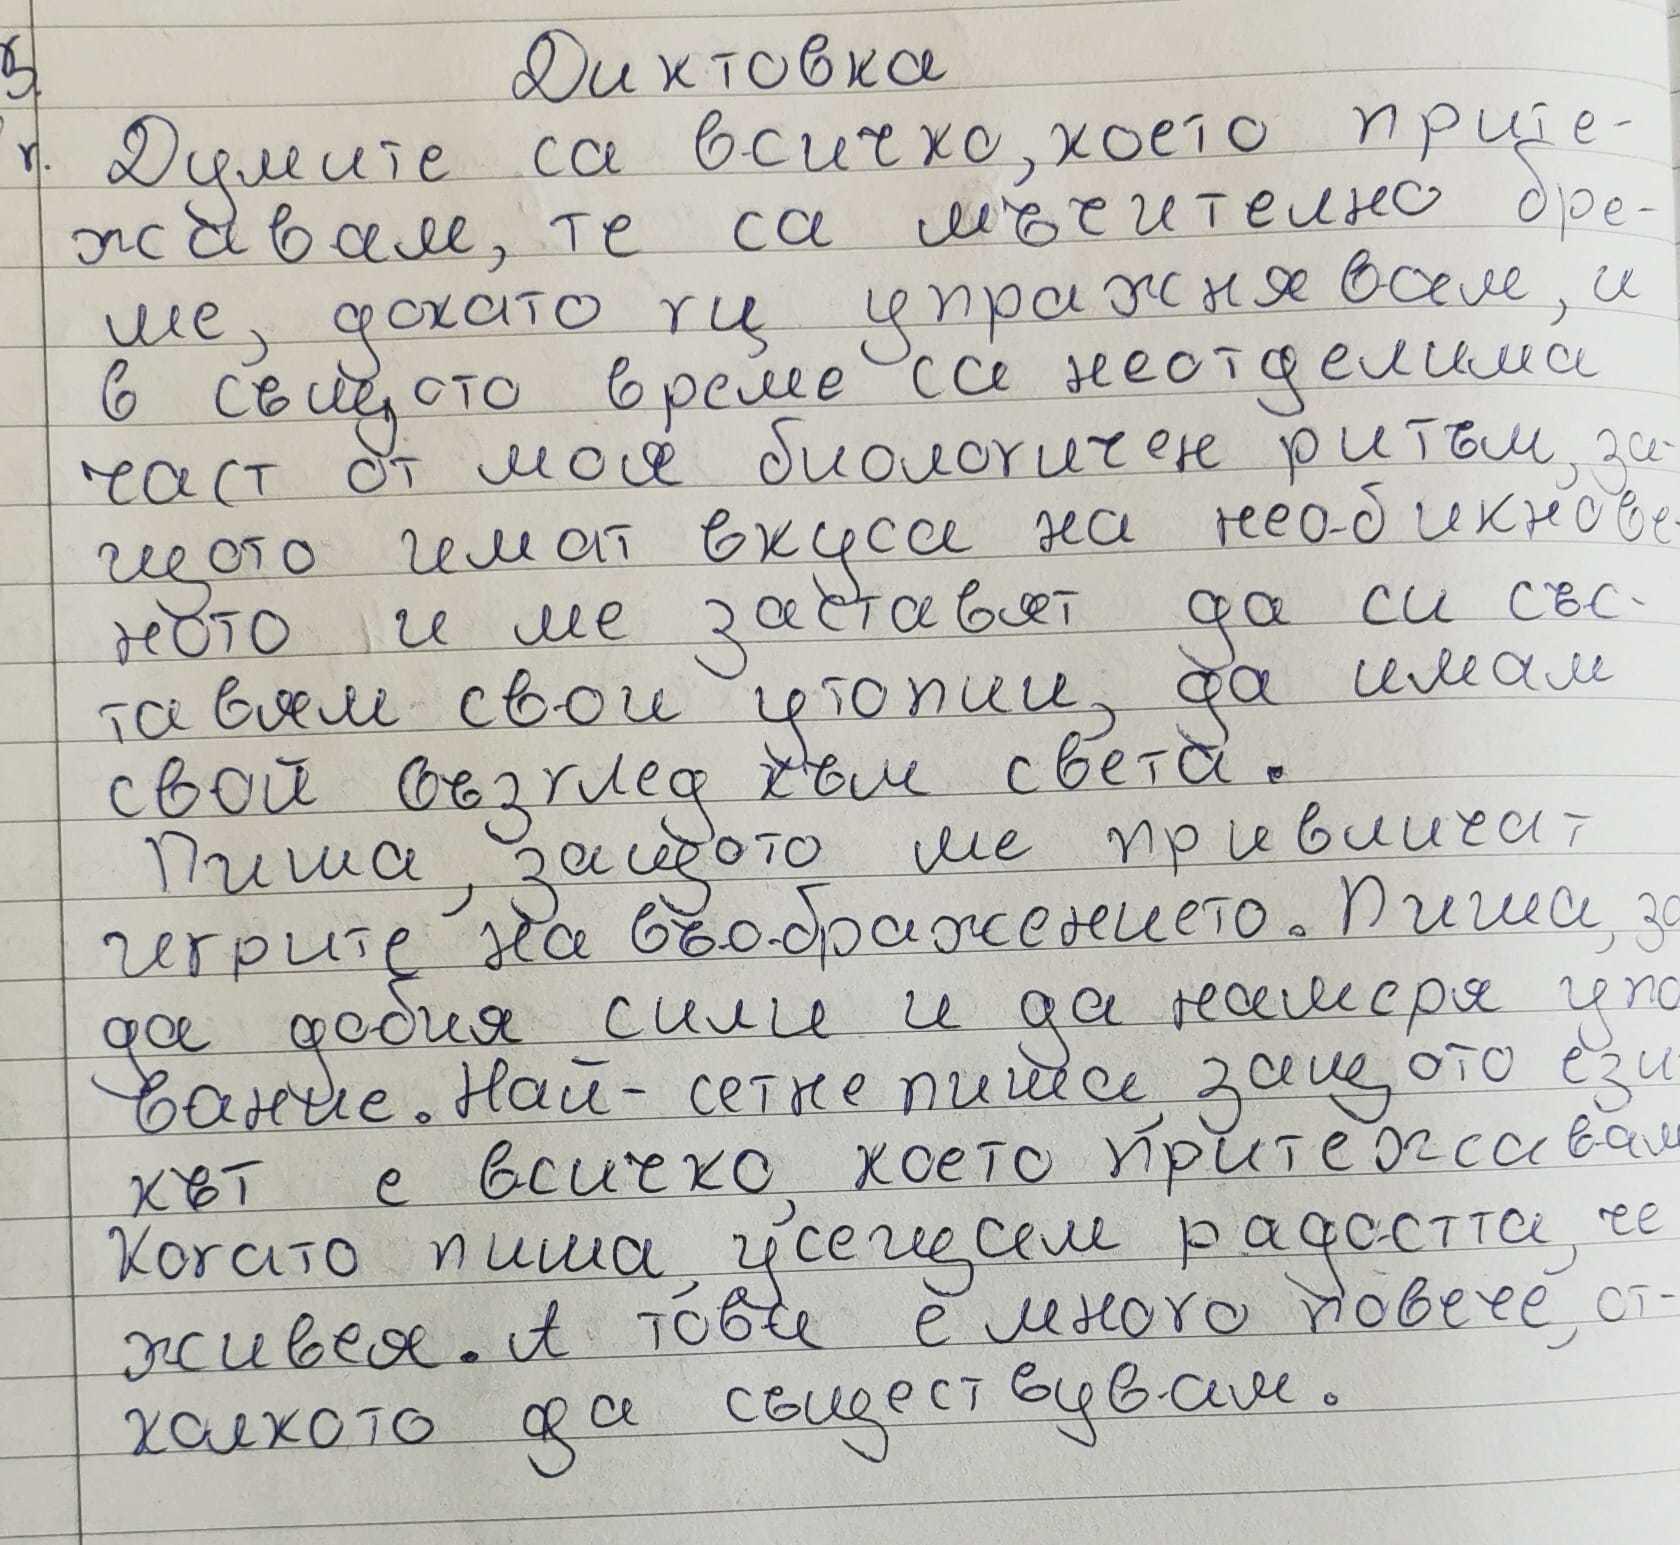 Диктовка
Думите са всичко, което прите-
жавам, те са мъчително бре-
ме, докато ги упражнявам, и
в същото време са неотделима
част от моя биологичен ритъм, за-
щото имат вкуса на необикнове
ното и ме заставят да си със-
тавям свои утопии, да имам
свой възглед към света.
Пиша, защото ме привличат
игрите на въображението. Пиша, за
да добия сили и да намеря упо
вание. Най-сетне пиша, защото ези
кът е всичко, което притежавам
Когато пиша, усещам радостта, че
живея. А това е много повече, от-
колкото да съществувам.